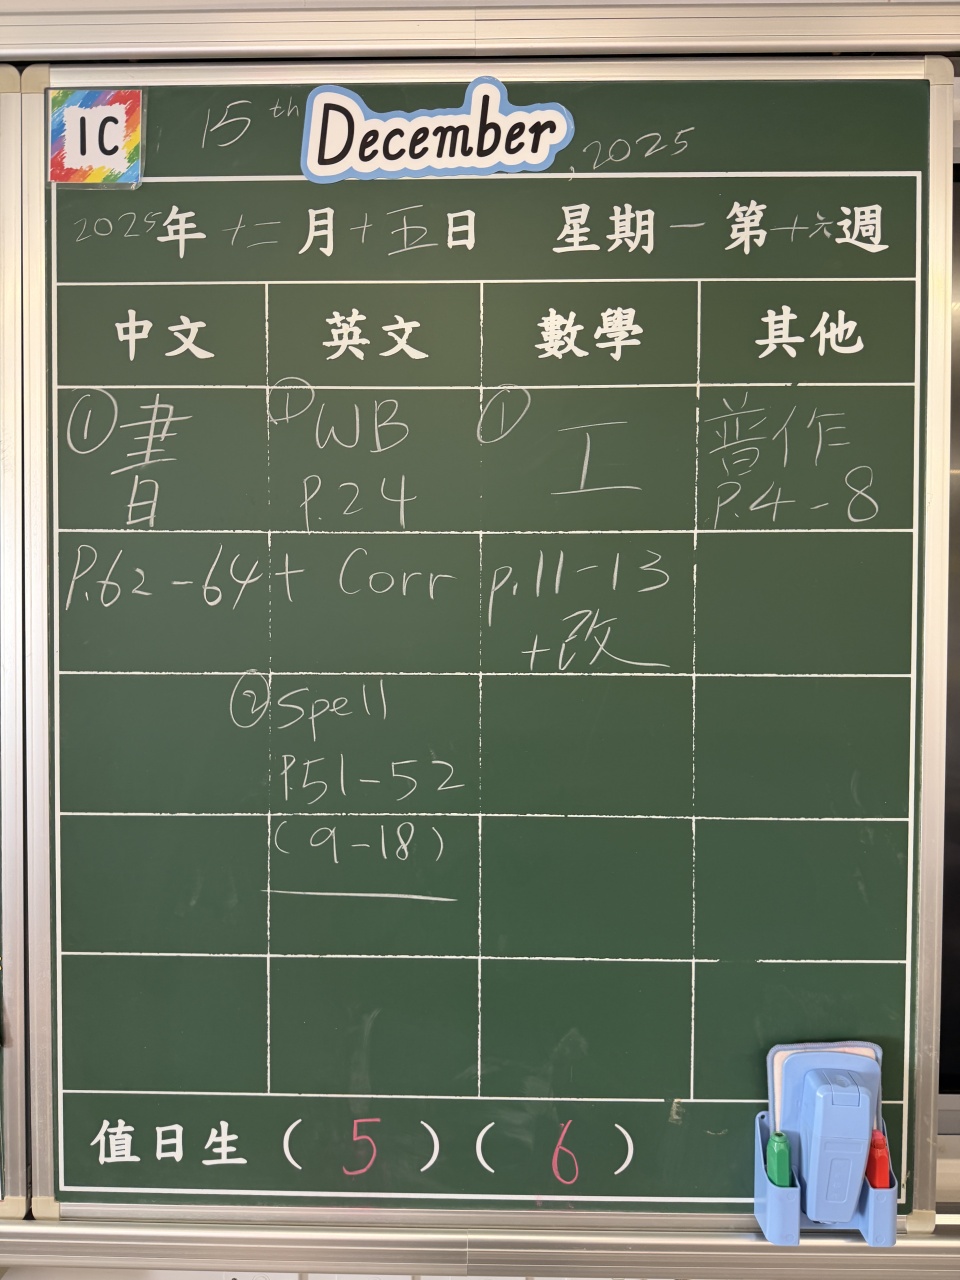 1C
15th December, 2025
2025年十二月十五日 星期一 第十六週
中文 英文 數學 其他
① 書 ① WB ① 工 普作
P.24 P.4-8
P.62-64 + Corr p.11-13
+改
② Spell
P.51-52
(9-18)
值日生 (5)(6)